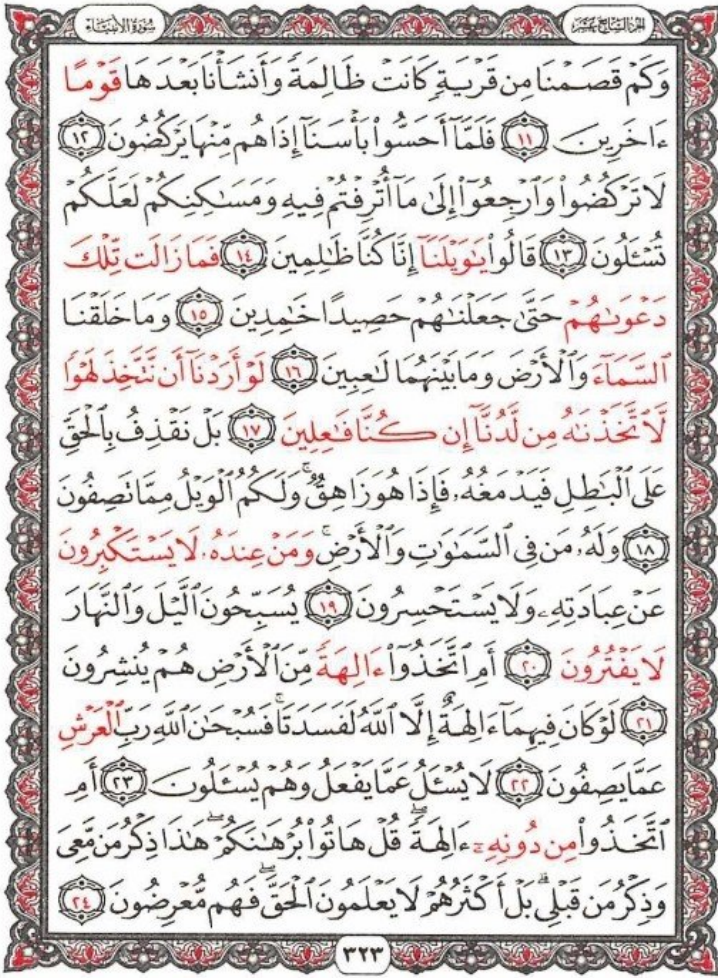 سُورَةُ الأَنبِيَاء
الجُزءُ السَّابِعَ عَشَرَ
وَكَمْ قَصَمْنَا مِن قَرْيَةٍ كَانَتْ ظَالِمَةً وَأَنشَأْنَا بَعْدَهَا قَوْمًا
ءَاخَرِينَ ١١ فَلَمَّآ أَحَسُّوا۟ بَأْسَنَآ إِذَا هُم مِّنْهَا يَرْكُضُونَ ١٢
لَا تَرْكُضُوا۟ وَٱرْجِعُوٓا۟ إِلَىٰ مَآ أُتْرِفْتُمْ فِيهِ وَمَسَـٰكِنِكُمْ لَعَلَّكُمْ
تُسْـَٔلُونَ ١٣ قَالُوا۟ يَـٰوَيْلَنَآ إِنَّا كُنَّا ظَـٰلِمِينَ ١٤ فَمَا زَالَت تِّلْكَ
دَعْوَىٰهُمْ حَتَّىٰ جَعَلْنَـٰهُمْ حَصِيدًا خَـٰمِدِينَ ١٥ وَمَا خَلَقْنَا
ٱلسَّمَآءَ وَٱلْأَرْضَ وَمَا بَيْنَهُمَا لَـٰعِبِينَ ١٦ لَوْ أَرَدْنَآ أَن نَّتَّخِذَ لَهْوًا
لَّٱتَّخَذْنَـٰهُ مِن لَّدُنَّآ إِن كُنَّا فَـٰعِلِينَ ١٧ بَلْ نَقْذِفُ بِٱلْحَقِّ
عَلَى ٱلْبَـٰطِلِ فَيَدْمَغُهُۥ فَإِذَا هُوَ زَاهِقٌ ۚ وَلَكُمُ ٱلْوَيْلُ مِمَّا تَصِفُونَ
١٨ وَلَهُۥ مَن فِى ٱلسَّمَـٰوَٰتِ وَٱلْأَرْضِ ۚ وَمَنْ عِندَهُۥ لَا يَسْتَكْبِرُونَ
عَنْ عِبَادَتِهِۦ وَلَا يَسْتَحْسِرُونَ ١٩ يُسَبِّحُونَ ٱلَّيْلَ وَٱلنَّهَارَ
لَا يَفْتُرُونَ ٢٠ أَمِ ٱتَّخَذُوٓا۟ ءَالِهَةً مِّنَ ٱلْأَرْضِ هُمْ يُنشِرُونَ
٢١ لَوْ كَانَ فِيهِمَآ ءَالِهَةٌ إِلَّا ٱللَّهُ لَفَسَدَتَا ۚ فَسُبْحَـٰنَ ٱللَّهِ رَبِّ ٱلْعَرْشِ
عَمَّا يَصِفُونَ ٢٢ لَا يُسْـَٔلُ عَمَّا يَفْعَلُ وَهُمْ يُسْـَٔلُونَ ٢٣ أَمِ
ٱتَّخَذُوا۟ مِن دُونِهِۦٓ ءَالِهَةً ۖ قُلْ هَاتُوا۟ بُرْهَـٰنَكُمْ ۖ هَـٰذَا ذِكْرُ مَن مَّعِىَ
وَذِكْرُ مَن قَبْلِى ۗ بَلْ أَكْثَرُهُمْ لَا يَعْلَمُونَ ٱلْحَقَّ ۖ فَهُم مُّعْرِضُونَ ٢٤
٣٢٣